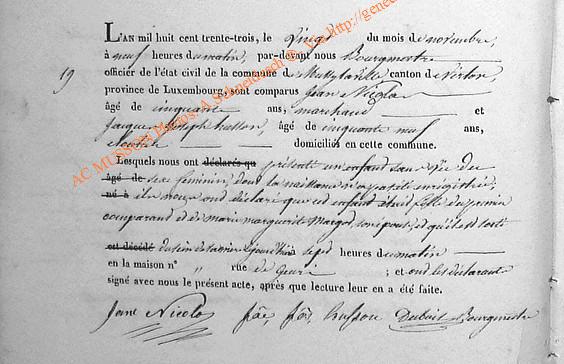 L'AN mil huit cent trente-trois, le Vingt du mois de novembre,
à neuf heures du matin, par-devant nous Bourgmestre
19 officier de l'état civil de la commune de canton de Virton
province de Luxembourg, sont comparus Jean Nicolas
âgé de cinquante ans, marchand et
Jacques Joseph husson, âgé de cinquante neuf ans,
domiciliés en cette commune.
Lesquels nous ont déclarés qu présenté un enfant sans vie du
âgé de sexe feminin, dont la naissance n'a pas été enregistrée,
né à ils nous ont déclaré que cet enfant était fille du premier
comparant et de marie marguerite son épouse, et qu'il est sorti
est décédé du sein de sa mère à sept heures du matin
en la maison n° " rue de ; et ont les déclarants
signé avec nous le présent acte, après que lecture leur en a été faite.
Jean Nicolas husson Bourgmestre
AC MUSSON Photos A. Schneidesch © - Via http://genea